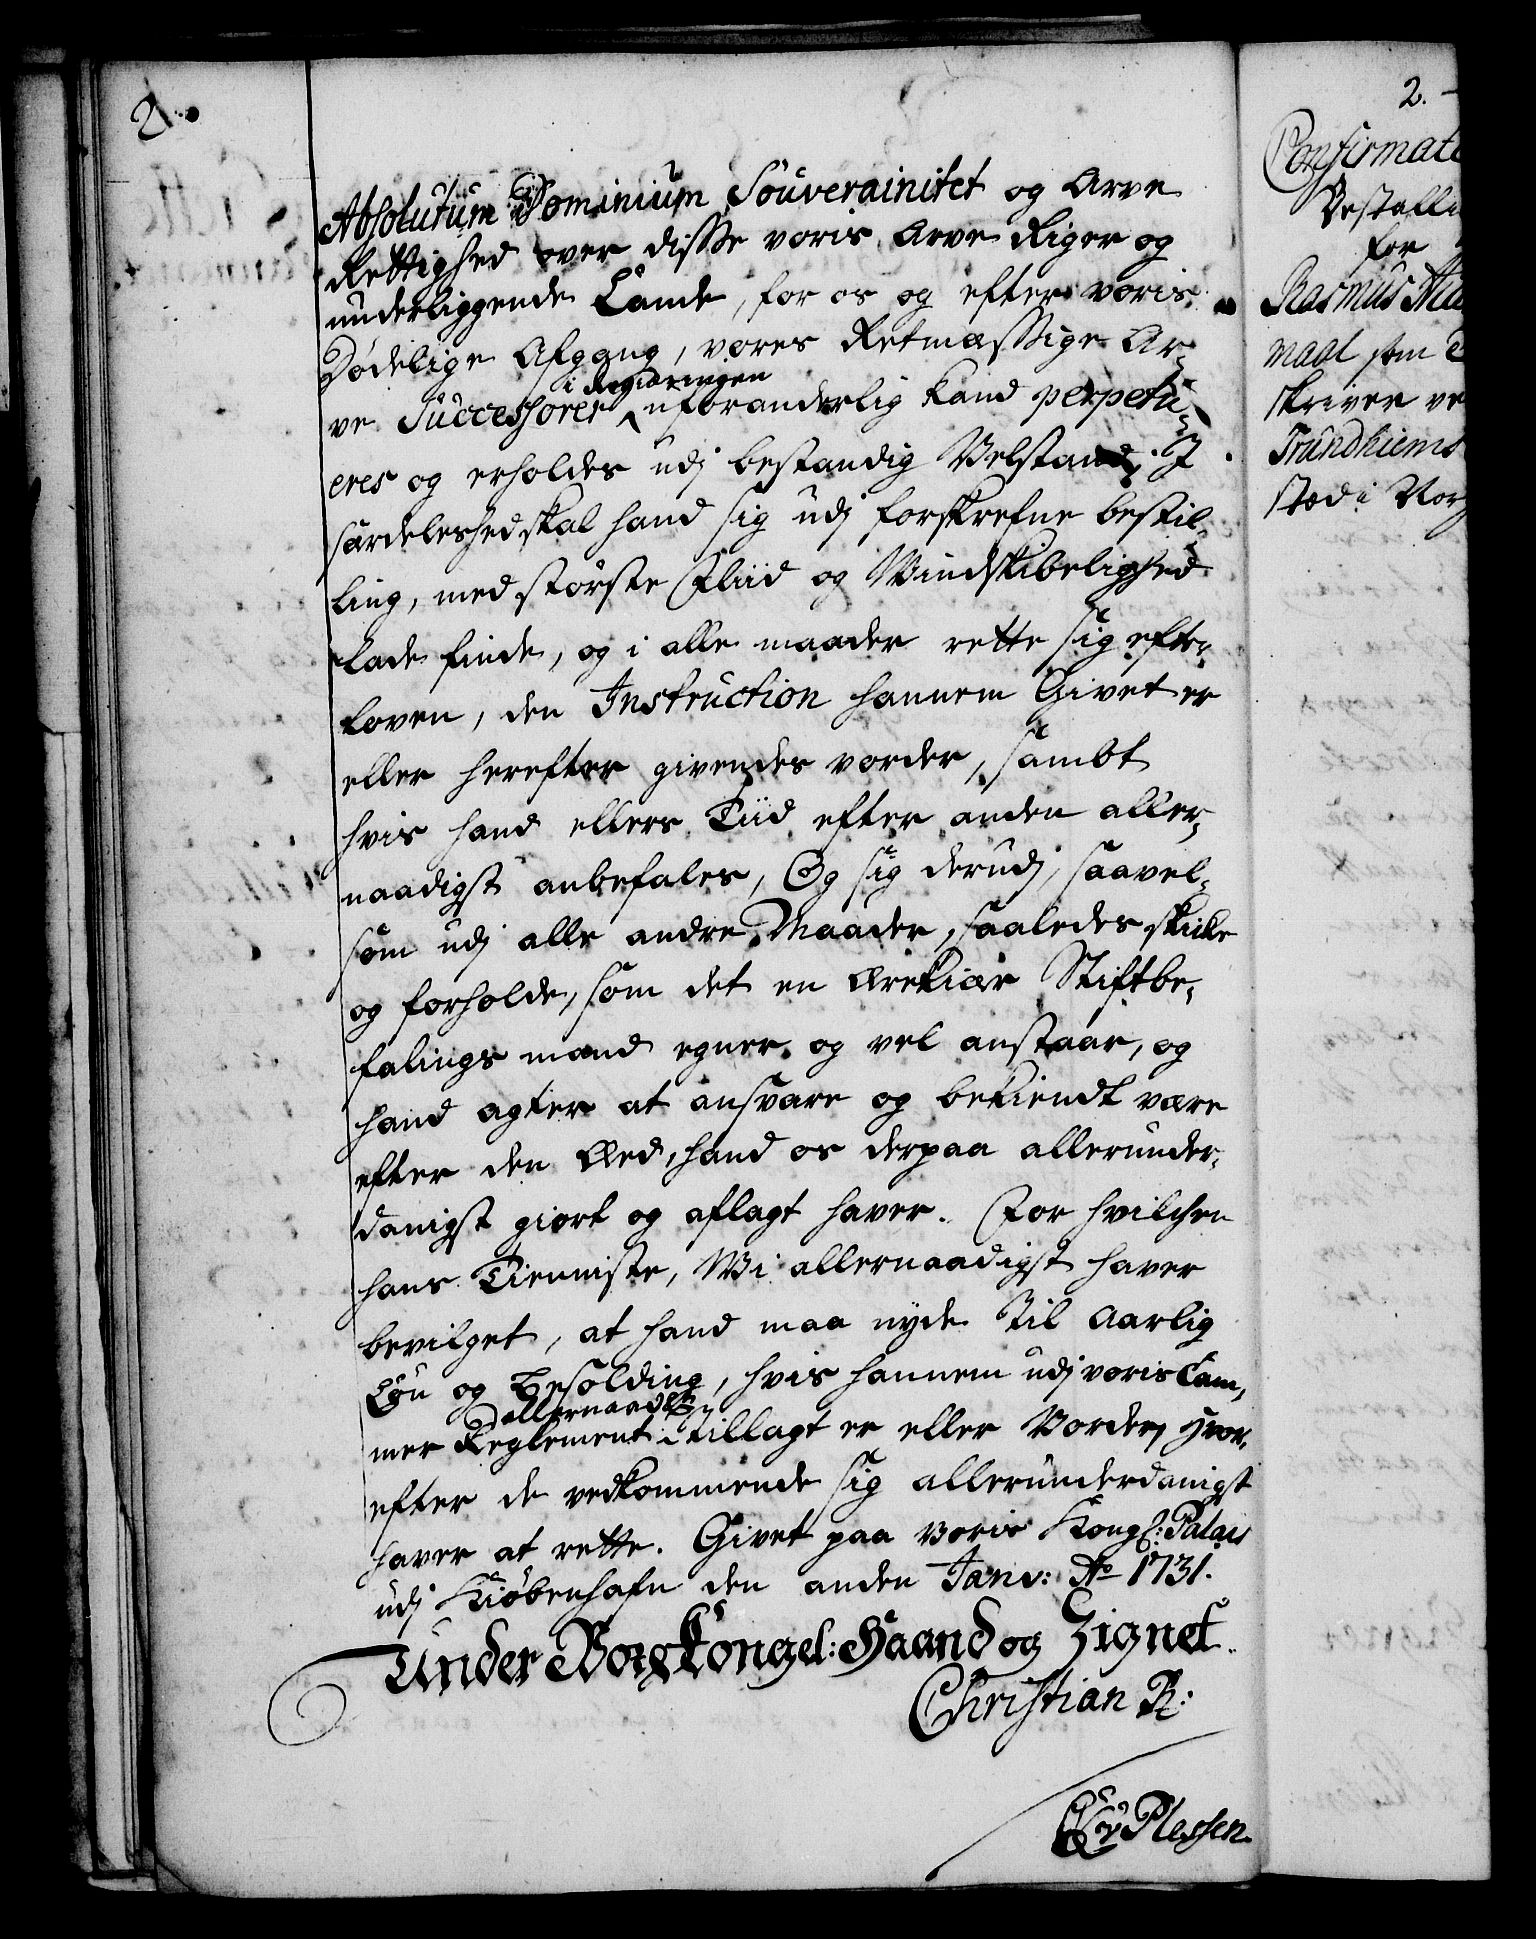 2.
Absolutum Dominium Souverainitet og Arve
Rettighed over disse voris Arve Riger og
underliggende Lande, for os og efter voris
Dødelige Afgang, vores Retmæssige Ar-
i Regiæringen
ve Successorer uforanderlig kand perpetu-
eres og erholdes udj bestandig Velstand. I
særdeleshed skal hand sig udj forskrefne bestil-
ling, med største Fliid og Windskibelighed
lade finde, og i alle maader rette sig efter
Loven, den Instruction hannem Givet er
eller herefter givendes vorder, sambt
hvis hand ellers Tiid efter anden aller-
naadigst anbefales, Og sig derudj, saavel-
som udj alle andre Maader, saaledes skicke
og forholde, som det en ærekiær Stiftbe-
falings mand egner og vel anstaar, og
hand agter at ansvare og bekiendt være
efter den Æed, hand os derpaa allerunder-
danigst giort og aflagt haver. For hvilchen
hans Tienniste, Wi allernaadigst haver
bevilget, at hand maa nyde til aarlig
Løn og Besolding, hvis hannem udj voris Cam-
allernaadigst
mer Reglement tillagt er eller Vorder, Hvor-
efter de vedkommende sig allerunderdanigst
haver at rette. Givet paa Voris Kongl: Palais
udj Kiøbenhafn den anden Janv: Ao 1731.
Under Vor Kongel: Haand og Zignet
Christian R:
CAv Plessen
2.
Confirmati
Bestalli
for
Rasmus
maal som
skriver ve
Trundhiems
stæd i Norg